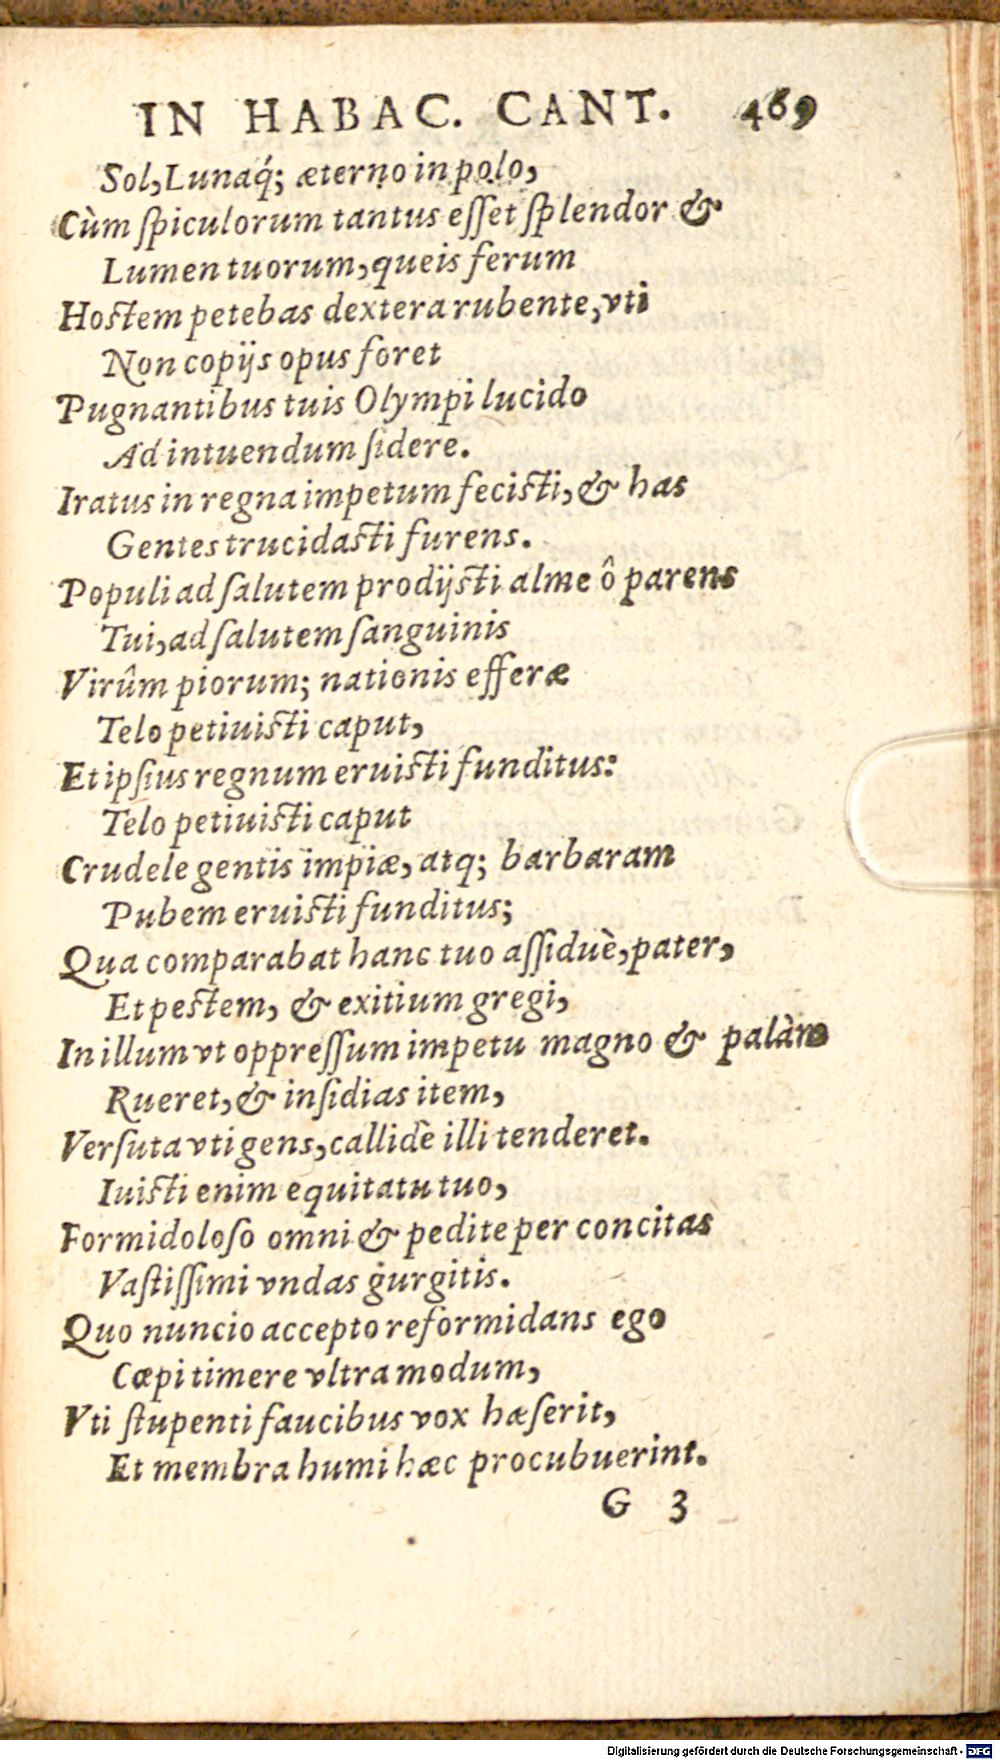 IN HABAC. CANT. 469
Sol, Lunaq́; æterno in polo,
Cùm ſpiculorum tantus eſſet ſplendor &
Lumen tuorum, queis ferum
Hoſtem petebas dextera rubente, vti
Non copijs opus foret
Pugnantibus tuis Olympi lucido
Ad intuendum ſidere.
Iratus in regna impetum feciſti, & has
Gentes trucidaſti furens.
Populi ad ſalutem prodijſti alme ô parens
Tui, ad ſalutem ſanguinis
Virûm piorum; nationis efferæ
Telo petiuiſti caput,
Et ipſius regnum eruiſti funditus:
Telo petiuiſti caput
Crudele gentis impiæ, atq; barbaram
Pubem eruiſti funditus;
Qua comparabat hanc tuo aſſiduè, pater,
Et peſtem, & exitium gregi,
In illum vt oppreſſum impetu magno & palàm
Rueret, & inſidias item,
Verſuta vti gens, callidè illi tenderet.
Iuiſti enim equitatu tuo,
Formidoloſo omni & pedite per concitas
Vaſtiſſimi vndas gurgitis.
Quo nuncio accepto reformidans ego
Cœpi timere vltra modum,
Vti ſtupenti faucibus vox hæſerit,
Et membra humi hæc procubuerint.
G 3
Digitalisierung gefördert durch die Deutsche Forschungsgemeinschaft - DFG